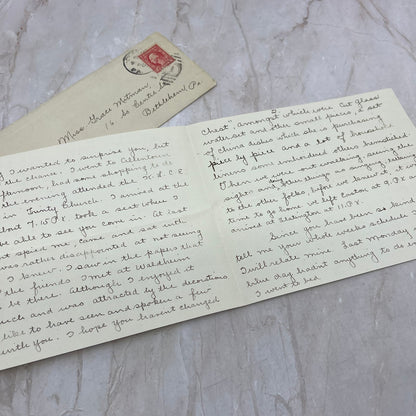 Miss Grace Mitman,
16 So Center
Bethlehem, Pa.
I wanted to surprise you, but
the chance. I went to Allentown
noon, had some shopping to do
the evening attended the
in Trinity Church. I arrived at the
7.15 P.M. took a seat where I
be able to see you come in. At last
spied me, came and sat with
was rather disappointed at not seeing
I knew. I saw in the papers that
the friends I met at Waldheim
be there. Although I enjoyed it
much and was attracted by the decorations
like to have seen and spoken a few
with you. I hope you havent changed
Chest", amongst which were Cut glass
water set and other small pieces, a set
of china dishes which she is furnishing
piece by piece and a lot of household
linens some embroidered others hemstitched
Then we were out walking, seeing the
sights and other things as singing, talking
to the other folks, before we knew it, it was
time to go home we left Easton at 9.
arrived at Slatington at 11.07 P.M.
Since you have been so kind
tell me your whole weeks schedule
I will relate mine. Last Monday, a
blue day hadnt anything to do
I went to bed